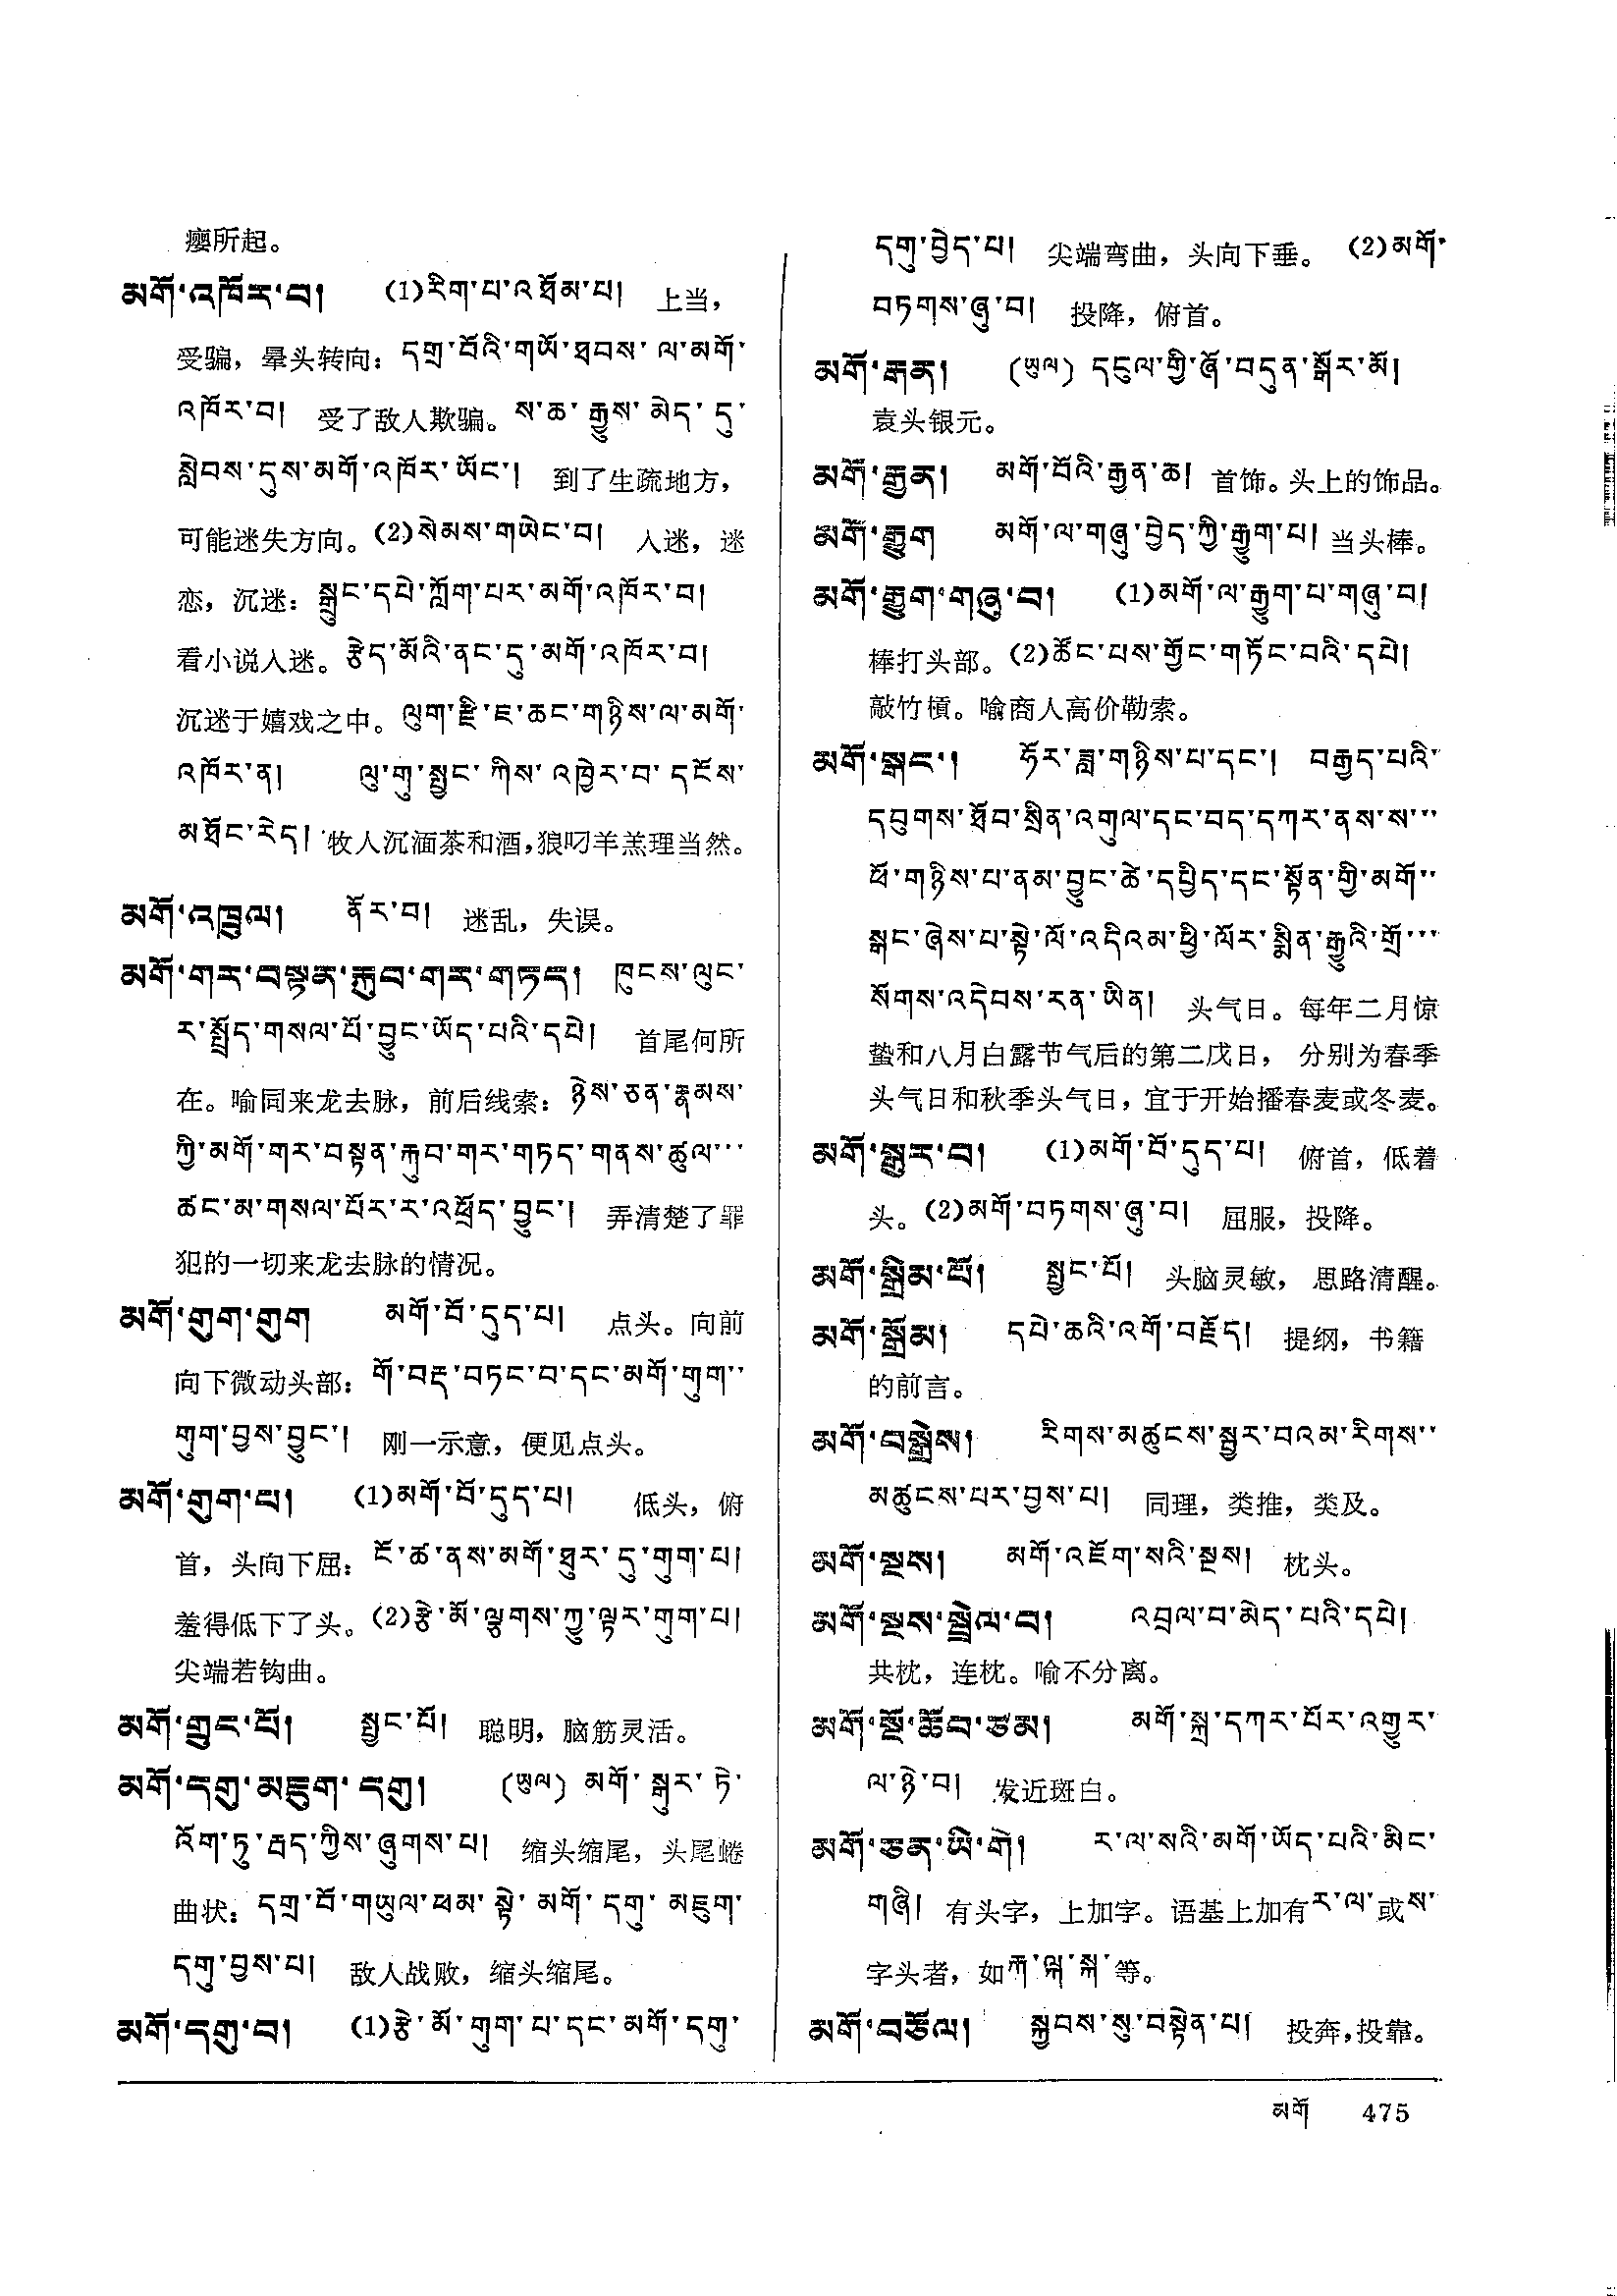 瘿所起。
མགོ་འཁོར་བ། (1)རིག་པ་འཐོམ་པ། 上当，
受骗，晕头转向：དགྲ་བོའི་གཡོ་ཐབས་ལ་མགོ་
འཁོར་བ། 受了敌人欺骗。ས་ཆ་རྒྱུས་མེད་དུ་
སླེབས་དུས་མགོ་འཁོར་ཡོང་། 到了生疏地方，
可能迷失方向。(2)སེམས་གཡེང་བ། 入迷，迷
恋，沉迷：སྒྲུང་དཔེ་ཀློག་པར་མགོ་འཁོར་བ།
看小说入迷。རྩེད་མོའི་ནང་དུ་མགོ་འཁོར་བ།
沉迷于嬉戏之中。ལུག་རྫི་ཇ་ཆང་གཉིས་ལ་མགོ་
འཁོར་ན། ལུ་གུ་སྤྱང་ཀིས་འཁྱེར་བ་དངོས་
མཐོང་རེད། 牧人沉湎茶和酒，狼叼羊羔理当然。
མགོ་འཁྲུལ། ནོར་བ། 迷乱，失误。
མགོ་གར་བསྟན་རྐུབ་གར་གཏད། ཁུངས་ལུང་
ར་སྤྲོད་གསལ་པོ་བྱུང་ཡོད་པའི་དཔེ། 首尾何所
在。喻同来龙去脉，前后线索：ཉེས་ཅན་རྣམས་
ཀྱི་མགོ་གར་བསྟན་རྐུབ་གར་གཏད་གནས་ཚུལ་་་
ཚང་མ་གསལ་པོར་ར་འཕྲོད་བྱུང་། 弄清楚了罪
犯的一切来龙去脉的情况。
མགོ་གུག་གུག མགོ་བོ་དུད་པ། 点头。向前
向下微动头部：གོ་བརྡ་བཏང་བ་དང་མགོ་གུག་་
གུག་བྱས་བྱུང་། 刚一示意，便见点头。
མགོ་གུག་པ། (1)མགོ་བོ་དུད་པ། 低头，俯
首，头向下屈：ངོ་ཚ་ནས་མགོ་ཐུར་དུ་གུག་པ།
羞得低下了头。(2)རྩེ་མོ་ལྕགས་ཀྱུ་ལྟར་གུག་པ།
尖端若钩曲。
མགོ་གྲུང་པོ། སྤྱང་པོ། 聪明，脑筋灵活。
མགོ་དགུ་མཇུག་དགུ། (ཡུལ) མགོ་སྒུར་ཏེ་
འོག་ཏུ་རྦད་ཀྱིས་ཞུགས་པ། 缩头缩尾，头尾蜷
曲状：དགྲ་བོ་གཡུལ་ཕམ་སྟེ་མགོ་དགུ་མཇུག་
དགུ་བྱས་པ། 敌人战败，缩头缩尾。
མགོ་དགུ་བ། (1)རྩེ་མོ་གུག་པ་དང་མགོ་དགུ་
དགུ་བྱེད་པ། 尖端弯曲，头向下垂。(2)མགོ་
བཏགས་ཞུ་བ། 投降，俯首。
མགོ་རྒན། (ཡུལ) དངུལ་གྱི་ཞོ་བདུན་སྒོར་མོ།
袁头银元。
མགོ་རྒྱན། མགོ་བོའི་རྒྱན་ཆ། 首饰。头上的饰品。
མགོ་རྒྱུག མགོ་ལ་གཞུ་བྱེད་ཀྱི་རྒྱུག་པ། 当头棒。
མགོ་རྒྱུག་གཞུ་བ། (1)མགོ་ལ་རྒྱུག་པ་གཞུ་བ།
棒打头部。(2)ཚོང་པས་གྱོང་གཏོང་བའི་དཔེ།
敲竹槓。喻商人高价勒索。
མགོ་སྒང་། ཧོར་ཟླ་གཉིས་པ་དང་། བརྒྱད་པའི་
དབུགས་ཐོབ་སྲིན་འགུལ་དང་བད་དཀར་ནས་ས་་་
ཕོ་གཉིས་པ་ནམ་བྱུང་ཚེ་དཔྱིད་དང་སྟོན་གྱི་མགོ་་
སྒང་ཞེས་པ་སྟེ་ལོ་འདིའམ་ཕྱི་ལོར་སྨིན་རྒྱུའི་གྲོ་་་
སོགས་འདེབས་རན་ཡིན། 头气日。每年二月惊
蛰和八月白露节气后的第二戊日，分别为春季
头气日和秋季头气日，宜于开始播春麦或冬麦。
མགོ་སྒུར་བ། (1)མགོ་བོ་དུད་པ། 俯首，低着
头。(2)མགོ་བཏགས་ཞུ་བ། 屈服，投降。
མགོ་སྒྲིམ་པོ། སྤྱང་པོ། 头脑灵敏，思路清醒。
མགོ་སྒྲོམ། དཔེ་ཆའི་འགོ་བརྗོད། 提纲，书籍
的前言。
མགོ་བསྒྲེས། རིགས་མཚུངས་སྦྱར་བའམ་རིགས་་
མཚུངས་པར་བྱས་པ། 同理，类推，类及。
མགོ་སྔས། མགོ་འཇོག་སའི་སྔས། 枕头。
མགོ་སྔས་སྦྲེལ་བ། འབྲལ་བ་མེད་པའི་དཔེ།
共枕，连枕。喻不分离。
མགོ་སྔོ་ཆོབ་ཙམ། མགོ་སྐྲ་དཀར་པོར་འགྱུར་
ལ་ཉེ་བ། 发近斑白。
མགོ་ཅན་ཡི་གེ། ར་ལ་སའི་མགོ་ཡོད་པའི་མིང་
གཞི། 有头字，上加字。语基上加有ར་ལ་或ས་
字头者，如རྐ་ལྐ་སྐ་等。
མགོ་བཅོལ། སྐྱབས་སུ་བསྟེན་པ། 投奔，投靠。
མགོ 475